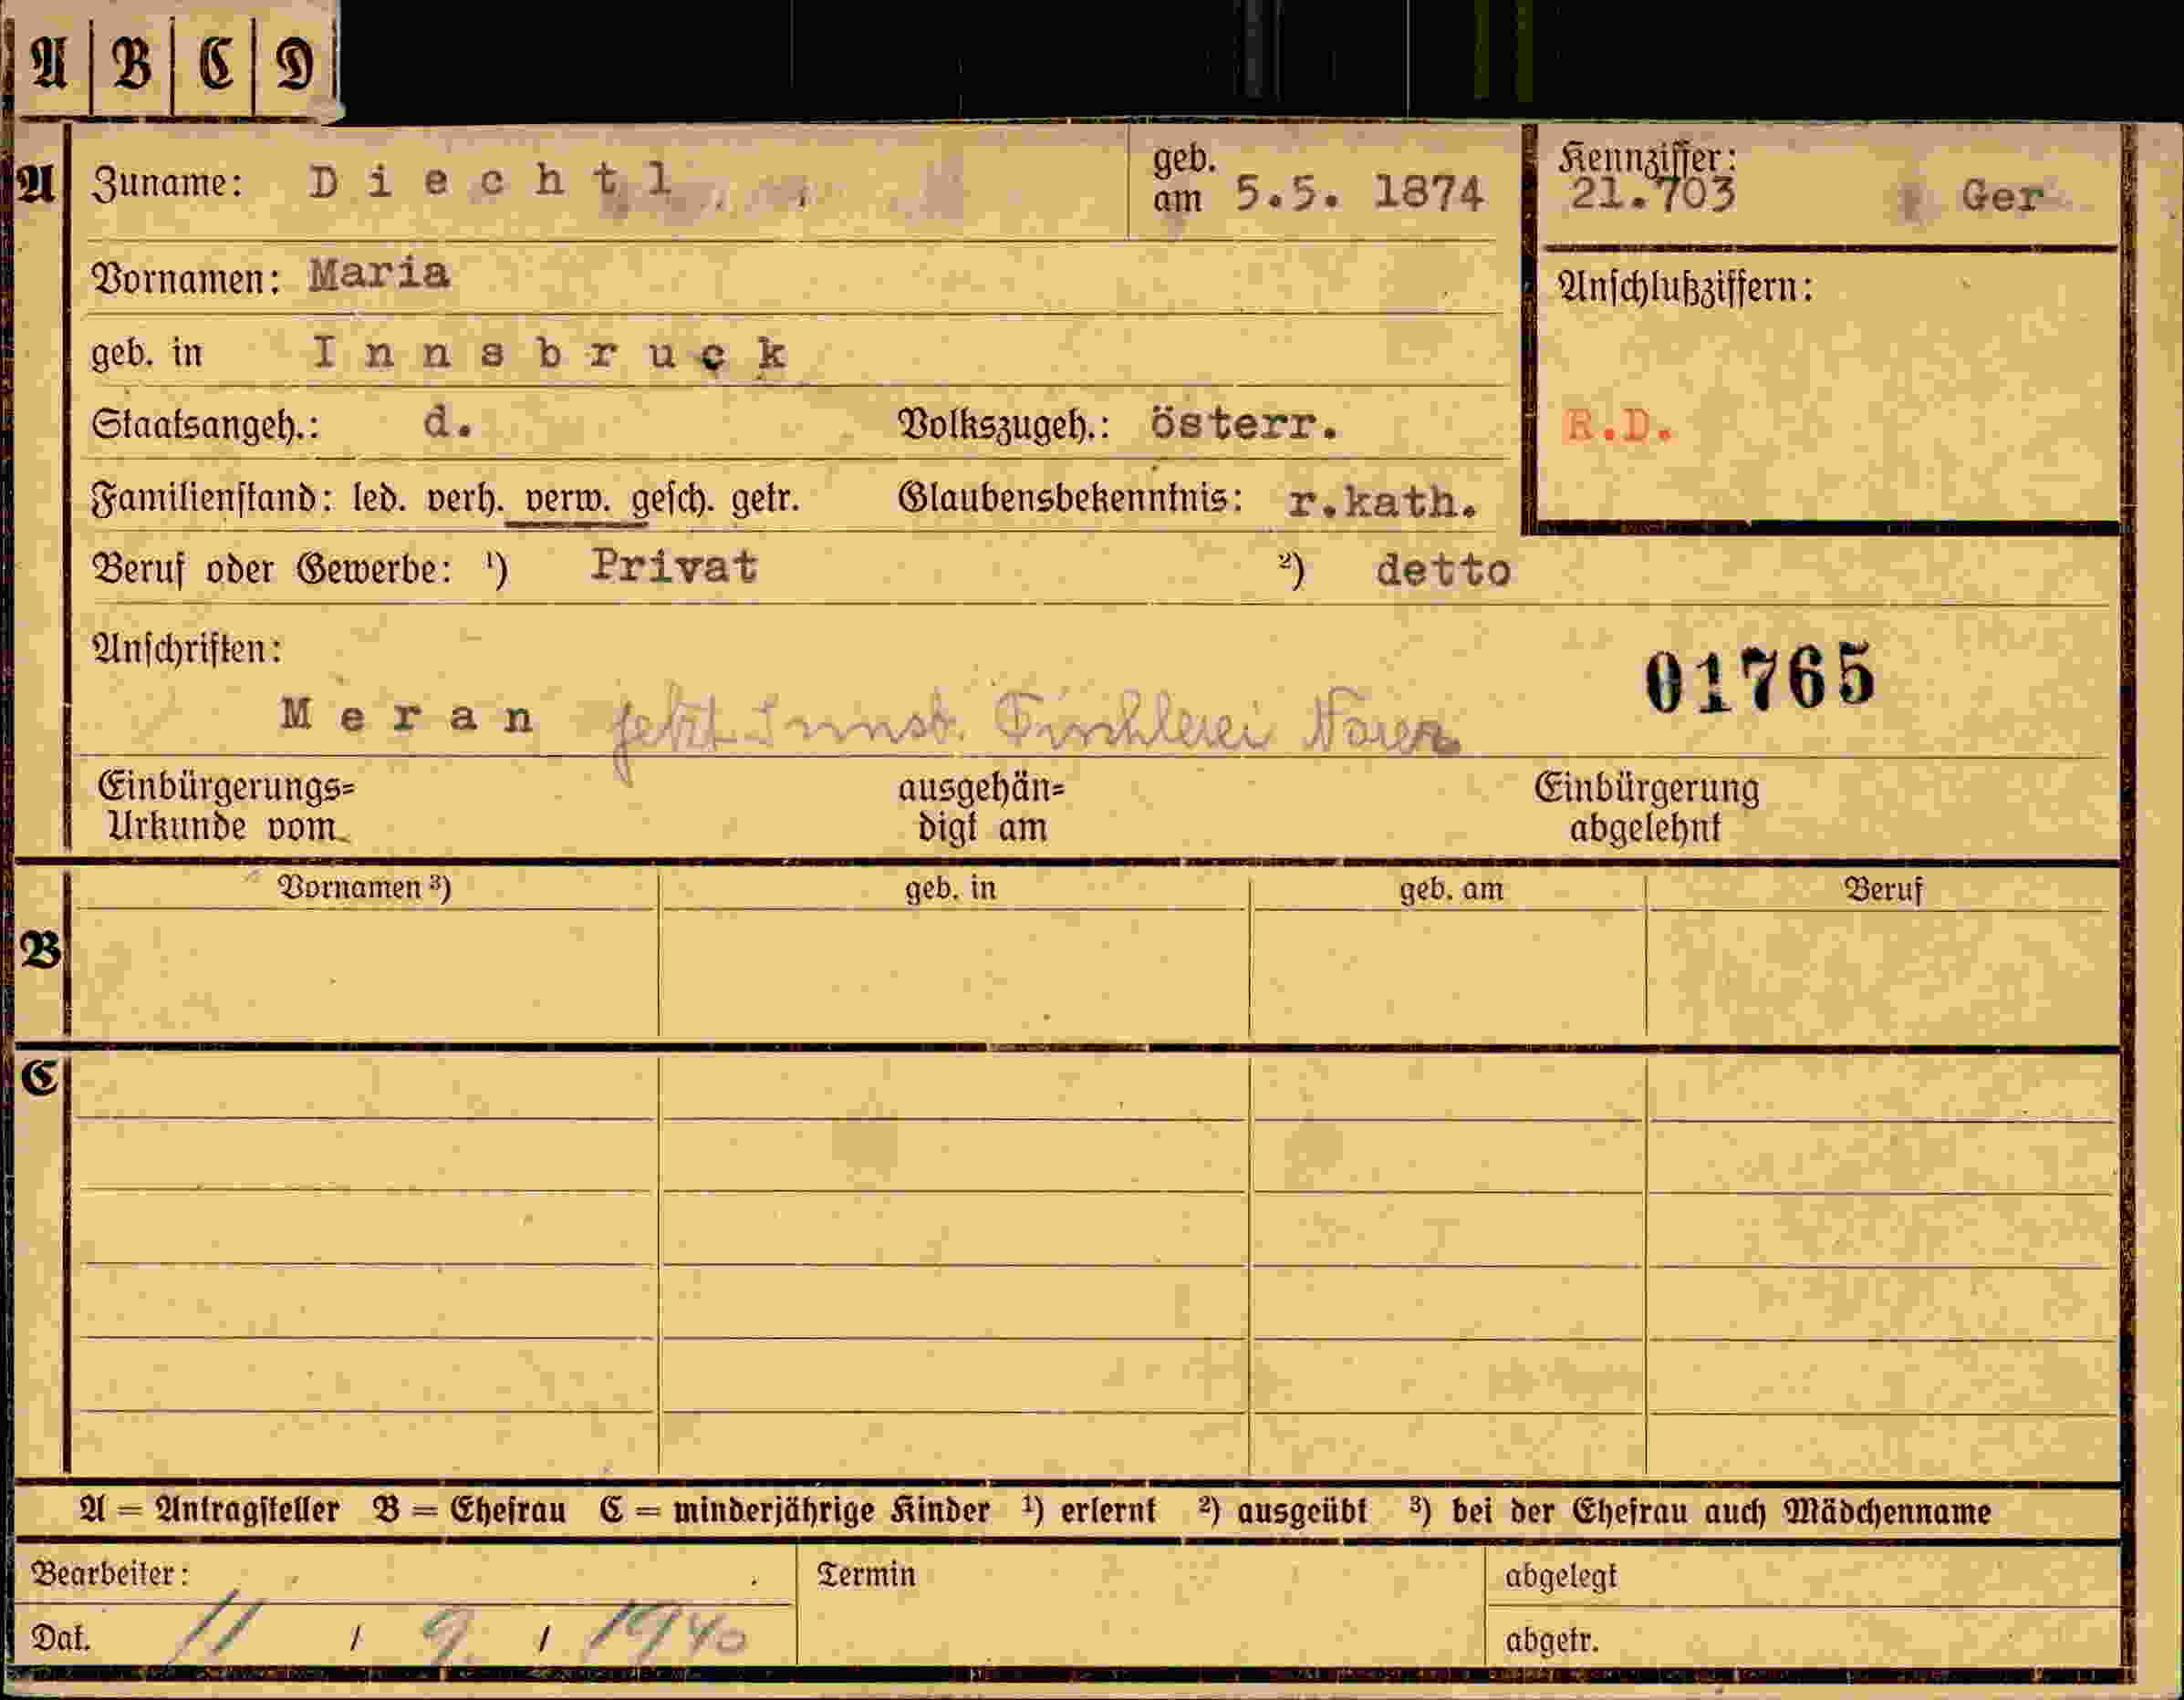 A B C D
A Zuname: Diechtl geb. am 5.5. 1874 Kennziffer: 21.703 Ger
Vornamen: Maria
Anschlußziffern:
geb. in Innsbruck
Staatsangeh.: d. Volkszugeh.: österr. R.D.
Familienstand: led. verh. verw. gesch. getr. Glaubensbekenntnis: r.kath.
Beruf oder Gewerbe: ¹) Privat ²) detto
Anschriften:
01765
Meran jetzt Innsb. Tischlerei
Einbürgerungs= ausgehän= Einbürgerung
Urkunde vom digt am abgelehnt
Vornamen ³) geb. in geb. am Beruf
B
C
A = Antragsteller B = Ehefrau C = minderjährige Kinder ¹) erlernt ²) ausgeübt ³) bei der Ehefrau auch Mädchenname
Bearbeiter: Termin abgelegt
Dat. 11 / 9. / 1940 abgetr.